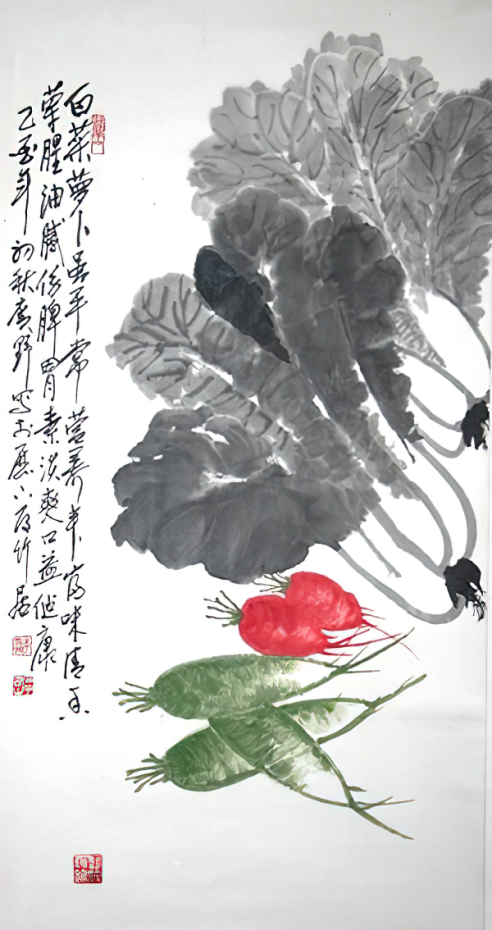 白菜萝卜虽平常营养丰富味清香
荤腥油腻伤脾胃素淡爽口益健康
年初秋广野写于 小府竹居